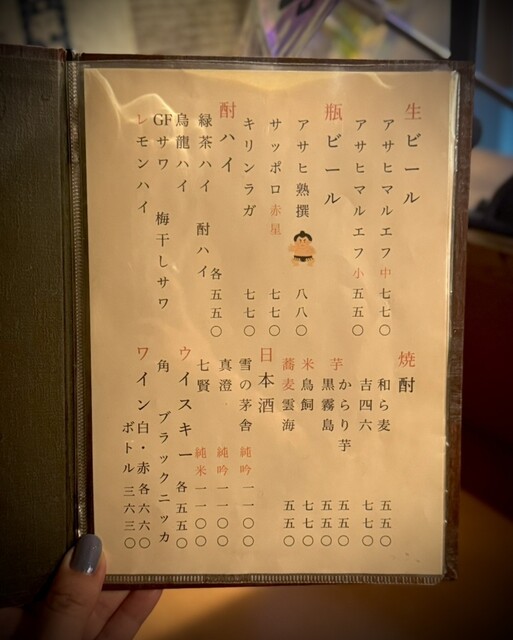 生ビール
アサヒマルエフ中 七七〇
アサヒマルエフ小 五五〇
瓶ビール
アサヒ熟撰 八八〇
サッポロ赤星 七七〇
キリンラガ 七七〇
酎ハイ
緑茶ハイ 酎ハイ 各五五〇
烏龍ハイ
GFサワ 梅干しサワ
レモンハイ
焼酎
和ら麦 五五〇
吉四六 七七〇
芋 からり芋 五五〇
黒霧島 五五〇
米 鳥飼 七七〇
蕎麦 雲海 五五〇
日本酒
雪の茅舎 純吟 一一〇〇
真澄 純吟 一一〇〇
七賢 純米 一一〇〇
ウイスキー 各五五〇
角 ブラックニッカ
ワイン 白・赤 各六六〇
ボトル 三六三〇